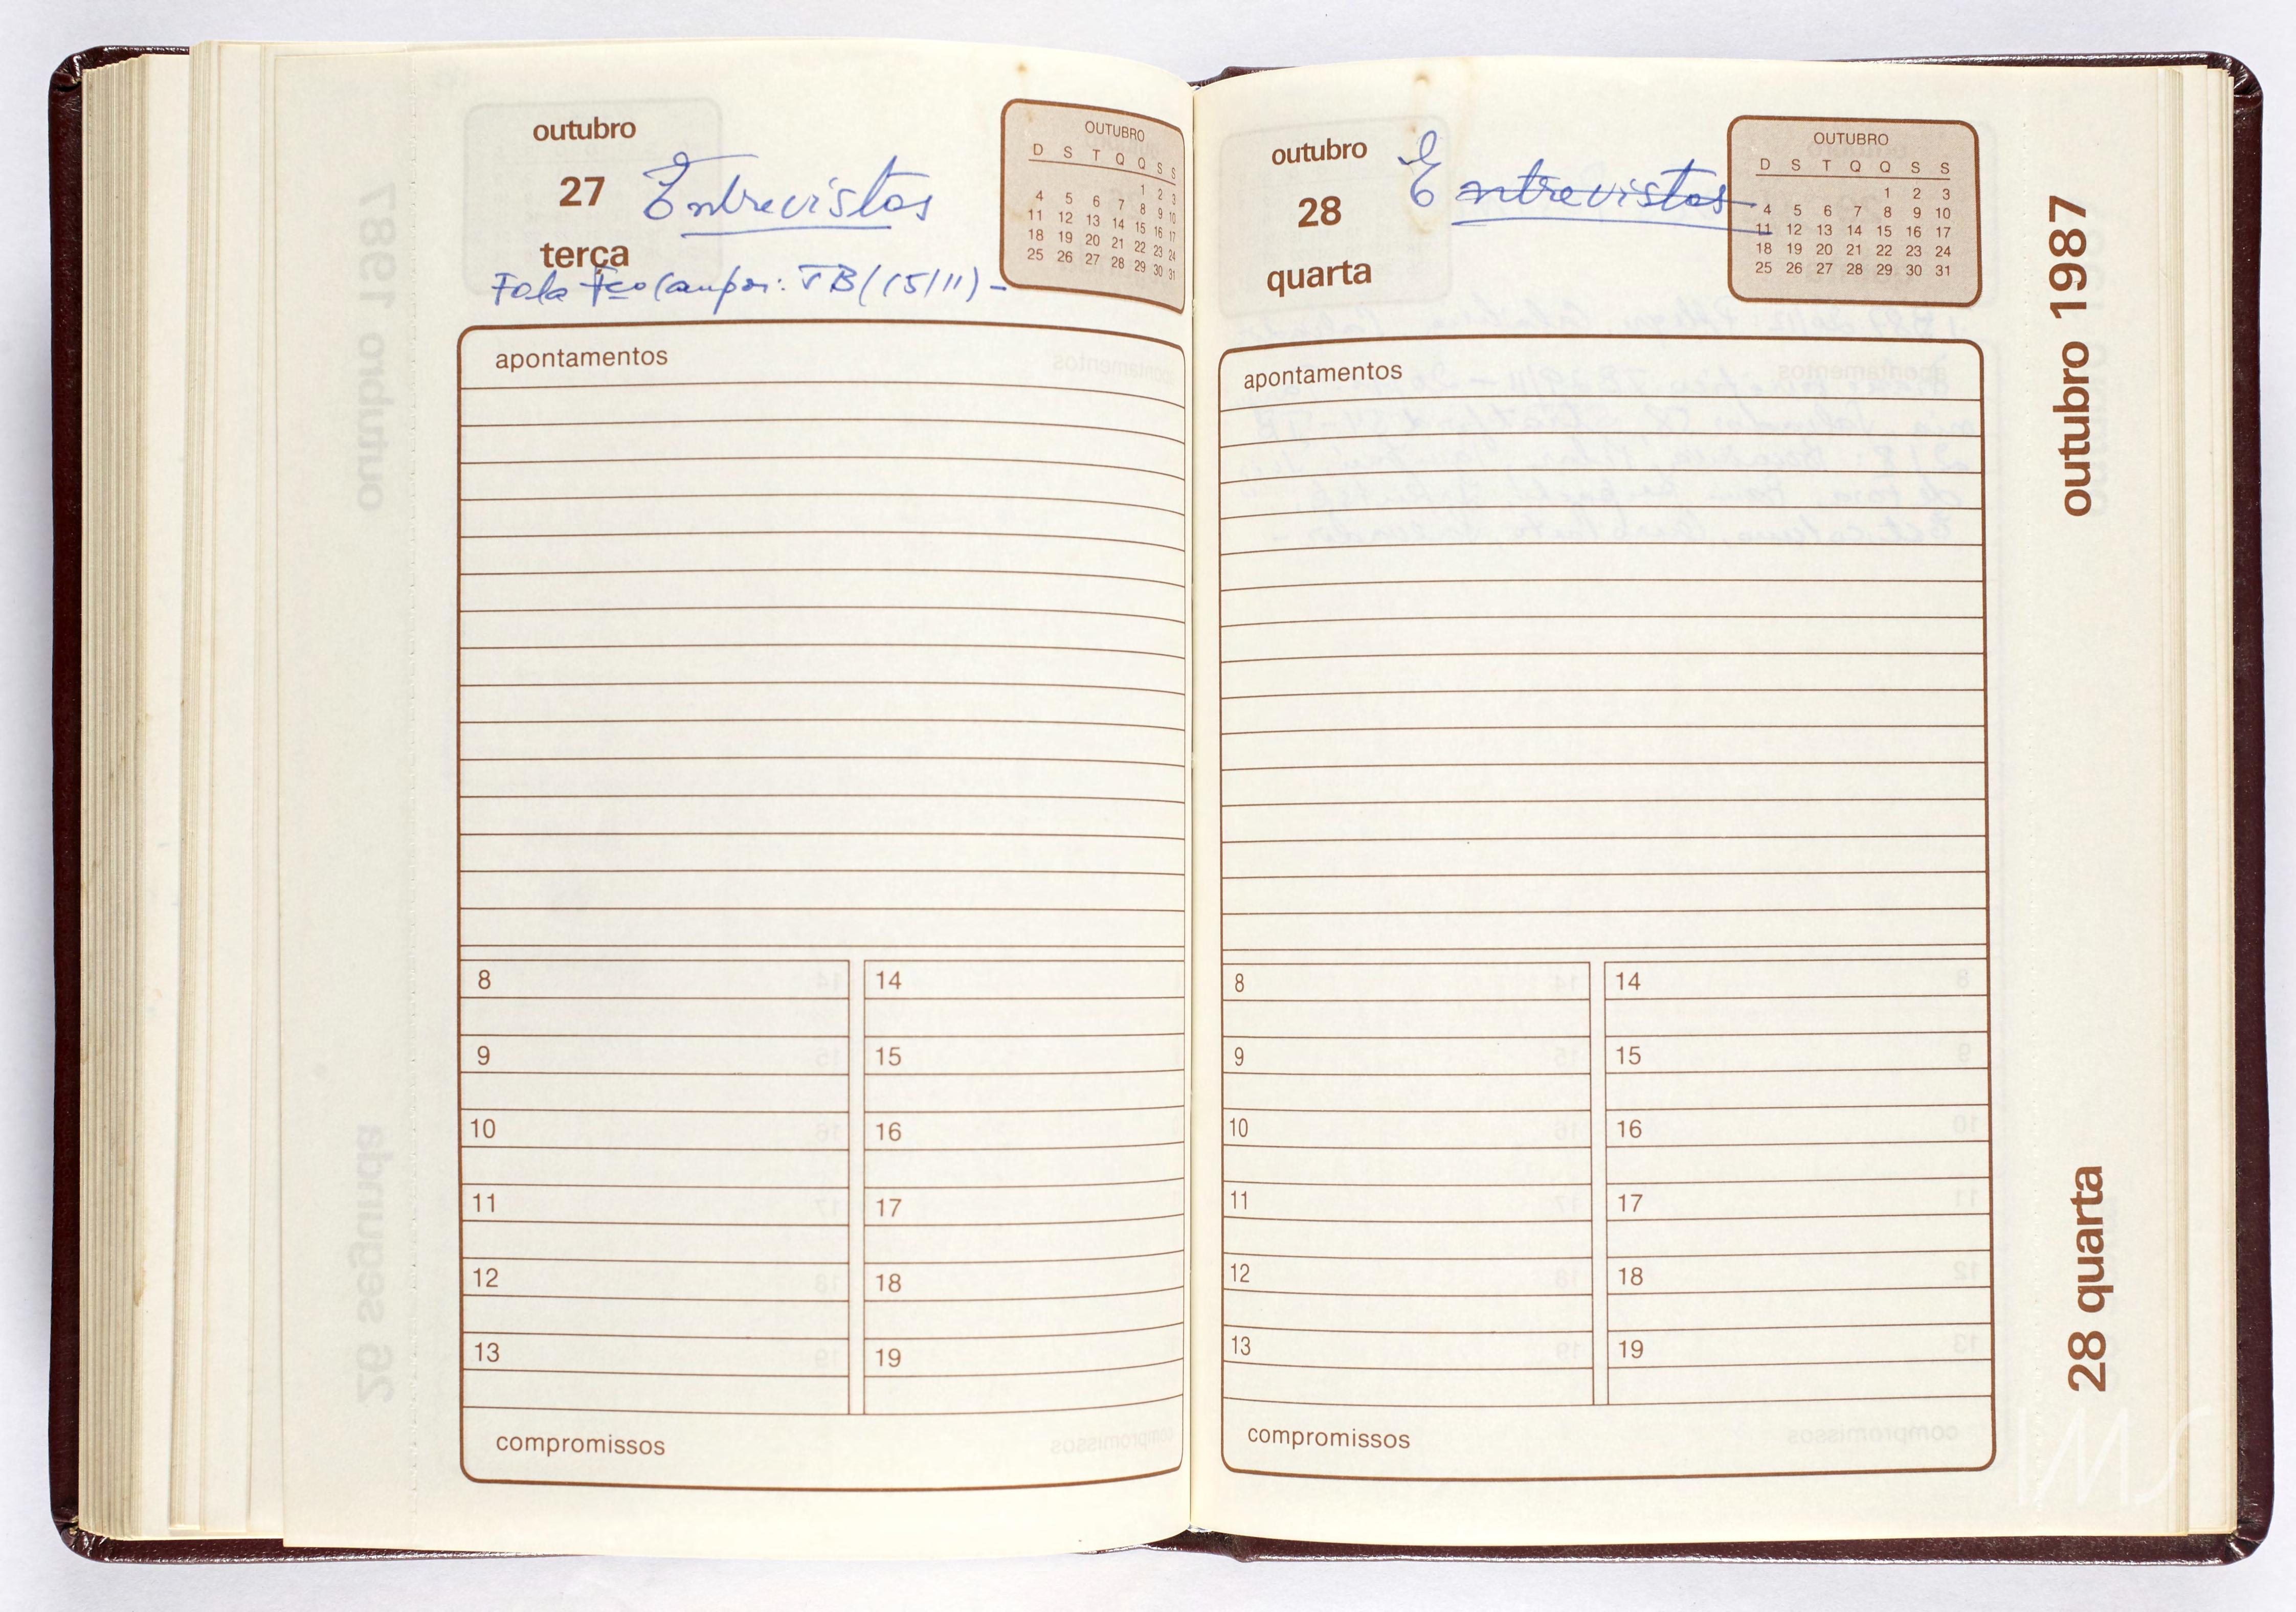 outubro
27
terça
Entrevistas
Fala Fco Campos: JB (15/11) -
OUTUBRO
D S T Q Q S S
1 2 3
4 5 6 7 8 9 10
11 12 13 14 15 16 17
18 19 20 21 22 23 24
25 26 27 28 29 30 31
apontamentos
8 14
9 15
10 16
11 17
12 18
13 19
compromissos
outubro
28
quarta
Entrevistas
OUTUBRO
D S T Q Q S S
1 2 3
4 5 6 7 8 9 10
11 12 13 14 15 16 17
18 19 20 21 22 23 24
25 26 27 28 29 30 31
apontamentos
8 14
9 15
10 16
11 17
12 18
13 19
compromissos
outubro 1987
28 quarta
IMS